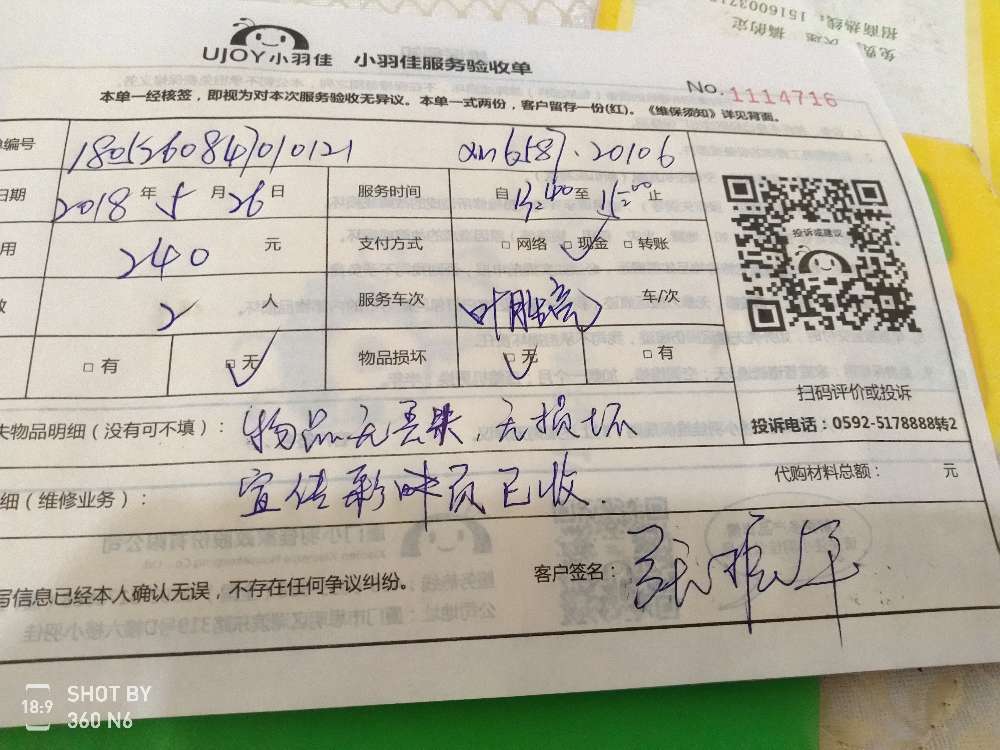 免费
快速
搞的定
招商热线：1516003715
UJOY小羽佳 小羽佳服务验收单
No.1114716
本单一经核签，即视为对本次服务验收无异议。本单一式两份，客户留存一份(红)。《维保须知》详见背面。
编号 1805260847010121 xm6587.20106
日期 2018年5月26日 服务时间 自13:00至15:00止
用 240元 支付方式 □网络 □现金 □转账
数 2人 服务车次 车/次
□有 □无 物品损坏 □无 □有
投诉或建议
扫码评价或投诉
投诉电话：0592-5178888转2
失物品明细（没有可不填）： 物品无丢失，无损坏
细（维修业务）： 宣传彩 页已收. 代购材料总额： 元
写信息已经本人确认无误，不存在任何争议纠纷。 客户签名：
18:9
SHOT BY
360 N6